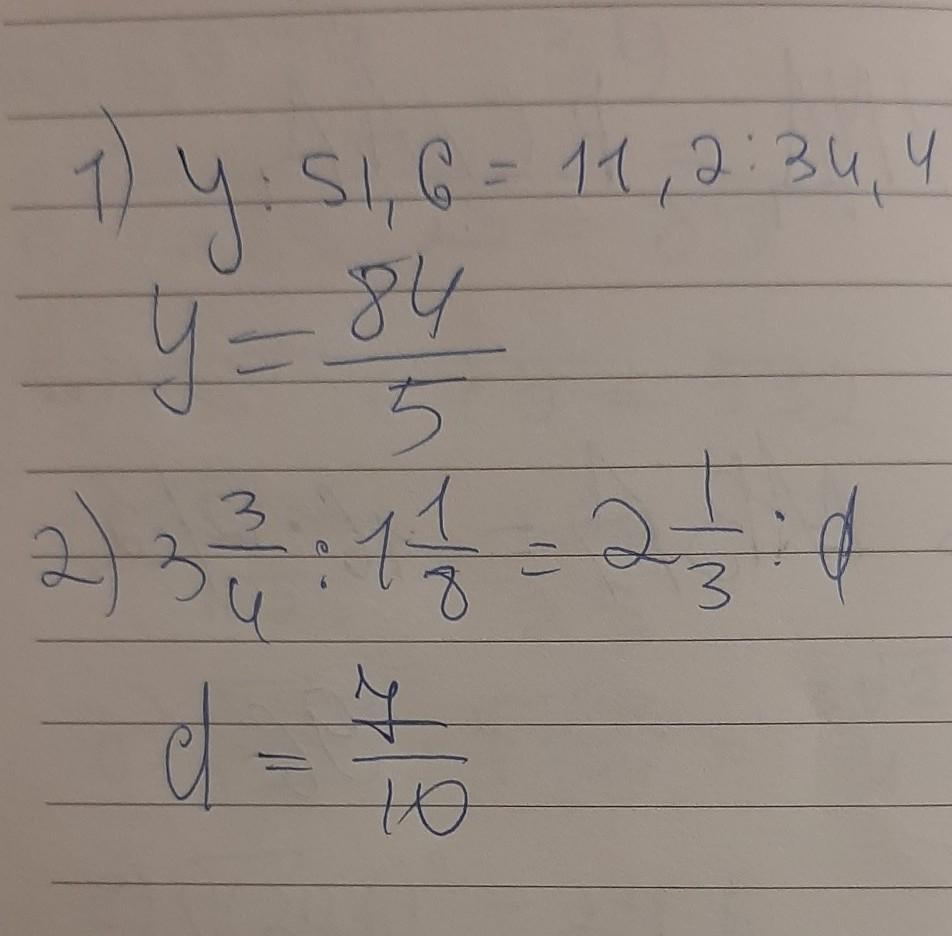 1) y : 51,6 = 11,2 : 34,4
y = 84/5
2) 3 3/4 : 1 1/8 = 2 1/3 : d
d = 7/10